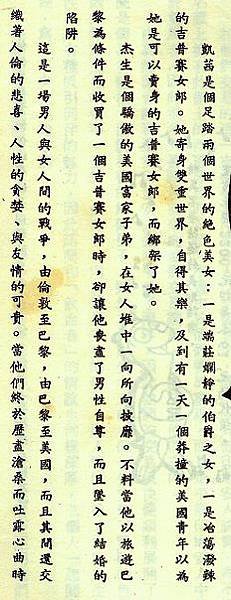 凱茜是個足踏兩個世界的絕色美女：一是端莊嫻靜的伯爵之女，一是冶蕩潑辣
的吉普賽女郎。她寄身雙重世界，自得其樂，及到有一天一個莽撞的美國青年以為
她是可以賣身的吉普賽女郎，而綁架了她。
杰生是個驕傲的美國富家子弟，在女人堆中一向所向披靡。不料當他以旅遊巴
黎為條件而收買了一個吉普賽女郎時，卻讓他喪盡了男性自尊，而且墜入了結婚的
陷阱。
這是一場男人與女人間的戰爭，由倫敦至巴黎，由巴黎至美國，而且其間還交
織著人倫的悲喜、人性的貪婪、與友情的可貴。當他們終於歷盡滄桑而吐露心曲時